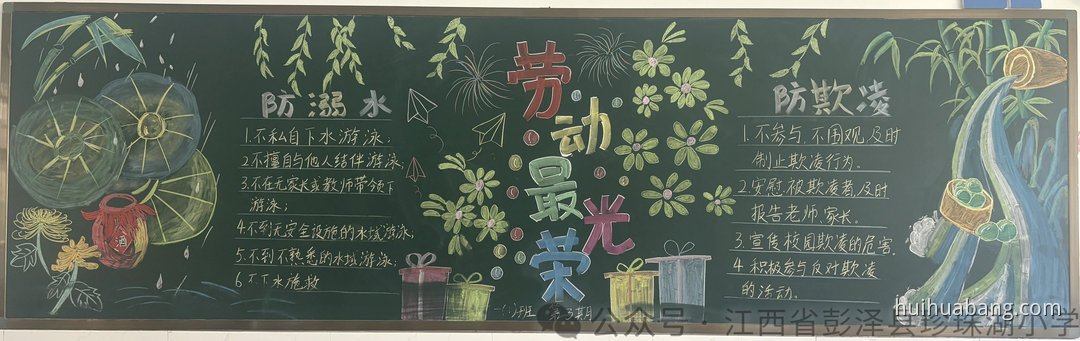 防溺水
1.不私自下水游泳;
2.不擅自与他人结伴游泳;
3.不在无家长或教师带领下
游泳;
4.不到无安全设施的水域游泳;
5.不到不熟悉的水域游泳;
6.不下水施救
酒
劳动最光荣
防欺凌
1.不参与,不围观,及时
制止欺凌行为.
2.安慰被欺凌者,及时
报告老师,家长.
3.宣传校园欺凌的危害.
4.积极参与反对欺凌
的活动.
第3期
huihuabang.com
公众号·江西省彭泽县珍珠湖小学